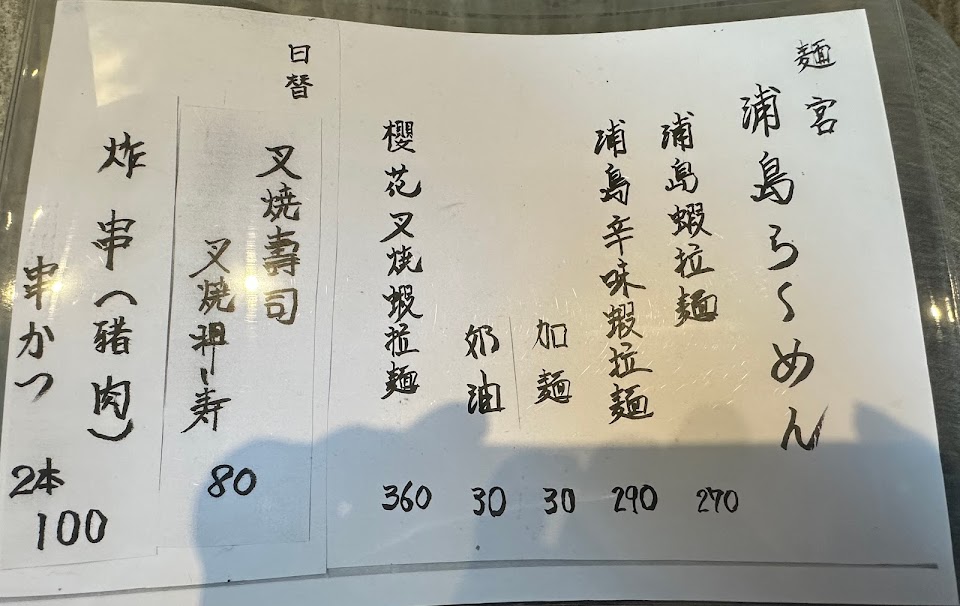 麵宮
浦島ら〜めん
浦島蝦拉麵 270
浦島辛味蝦拉麵 290
加麵 30
奶油 30
櫻花叉焼蝦拉麵 360
日替
叉焼壽司
叉焼押し寿 80
炸串(豬肉)
串かつ 2本
100